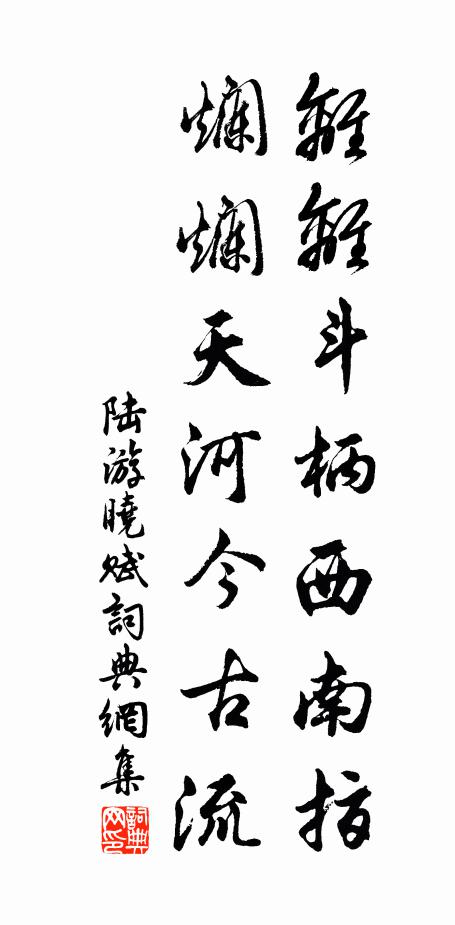 離離斗柄西南指
爛爛天河今古流
陆游曉賦詞典網集
詞典
网印